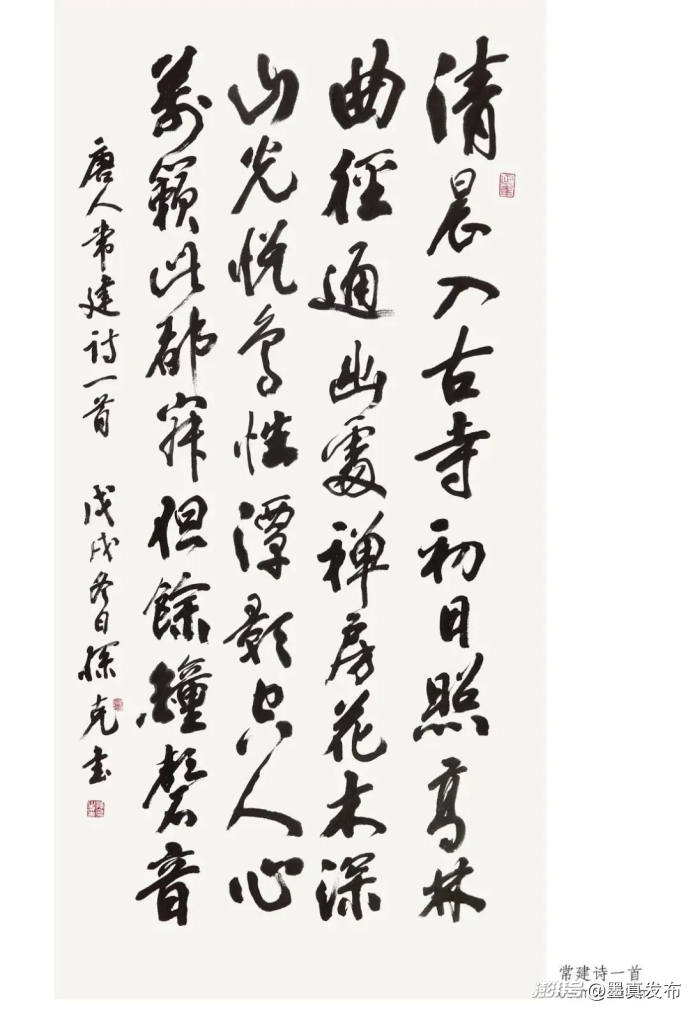 清晨入古寺初日照高林
曲徑通幽處禅房花木深
山光悦鳥性潭影空人心
萬籟此都寂但餘鐘磬音
唐人常建诗一首 戊戌冬日孫克书
常建诗一首
澎湃号 @墨真发布